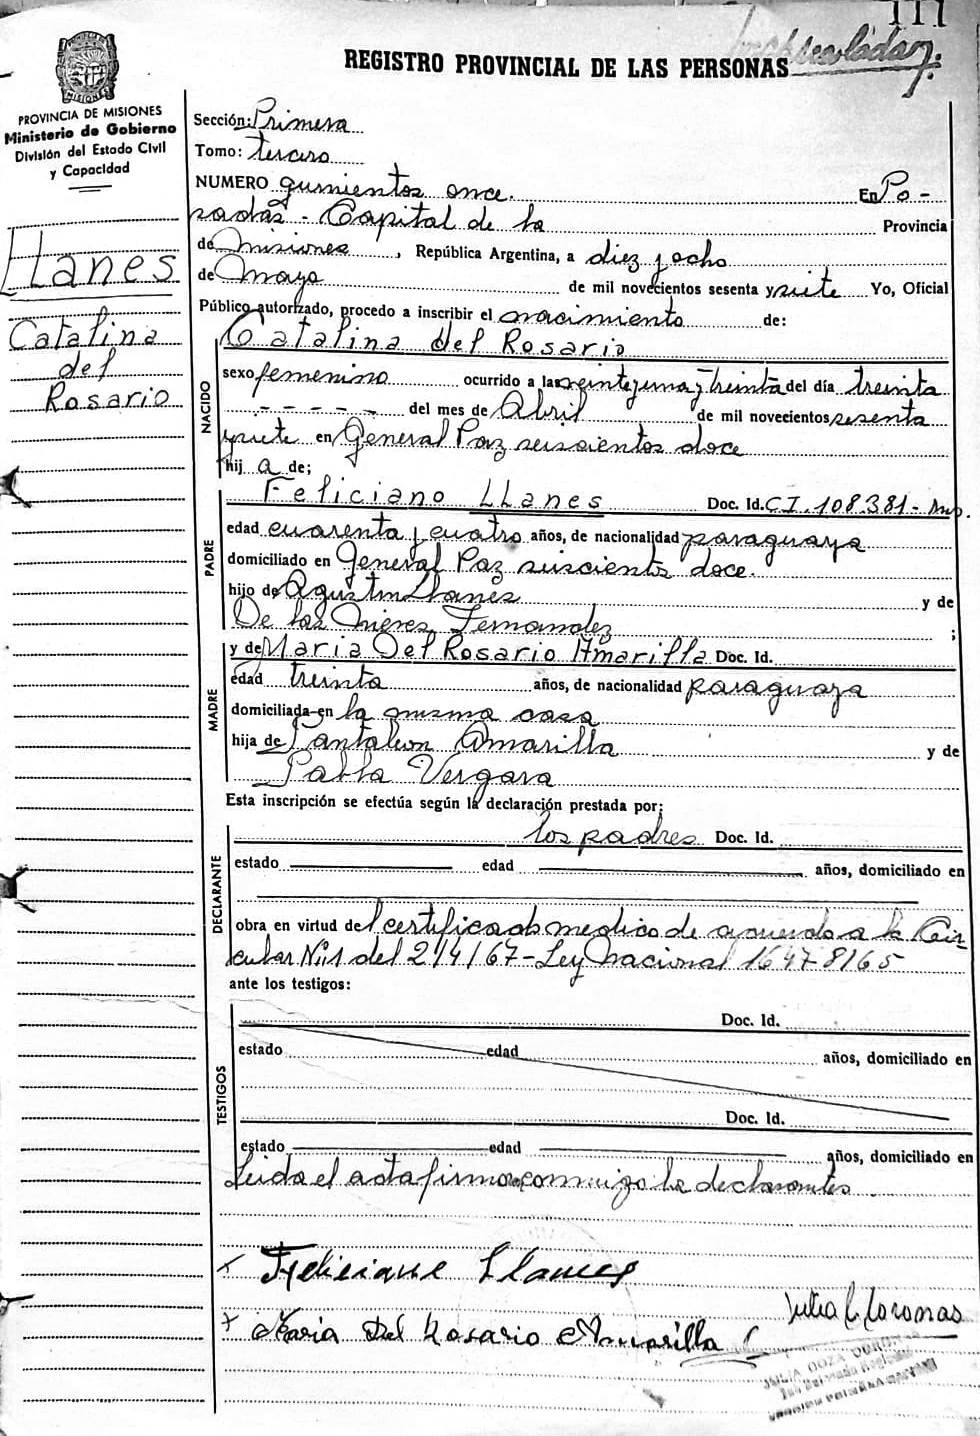 111
REGISTRO PROVINCIAL DE LAS PERSONAS
PROVINCIA DE MISIONES
Ministerio de Gobierno
División del Estado Civil
y Capacidad
LLanes
Catalina
del
Rosario
Sección: Primera
Tomo: tercero
NUMERO quinientos once. En Po-
sadas - Capital de la Provincia
de Misiones, República Argentina, a diez y ocho
de Mayo de mil novecientos sesenta y siete Yo, Oficial
Público autorizado, procedo a inscribir el nacimiento de:
NACIDO
Catalina del Rosario
sexo femenino ocurrido a las veinte y una y treinta del día treinta
- - - - - del mes de Abril de mil novecientos sesenta
y siete en General Paz seiscientos doce
hij a de;
PADRE
Feliciano LLanes Doc. Id. C.I. 108.381 -
edad cuarenta y cuatro años, de nacionalidad paraguaya
domiciliado en General Paz seiscientos doce.
hijo de Agustin Llanes y de
De las Nieves Fernandez ;
MADRE
y de Maria Del Rosario Amarilla Doc. Id.
edad treinta años, de nacionalidad paraguaya
domiciliada en la misma casa
hija de Pantaleon Amarilla y de
Pabla Vergara
Esta inscripción se efectúa según la declaración prestada por;
DECLARANTE
los padres Doc. Id.
estado edad años, domiciliado en
obra en virtud del certificado medico de acuerdo a la Cir
cular Nº1 del 2/4/67 - Ley Nacional 16478/65
ante los testigos:
TESTIGOS
Doc. Id.
estado edad años, domiciliado en
Doc. Id.
estado edad años, domiciliado en
Leida el acta firman conmigo los declarantes
x Feliciano Llanes
x Maria Del Rosario Amarilla
JULIA